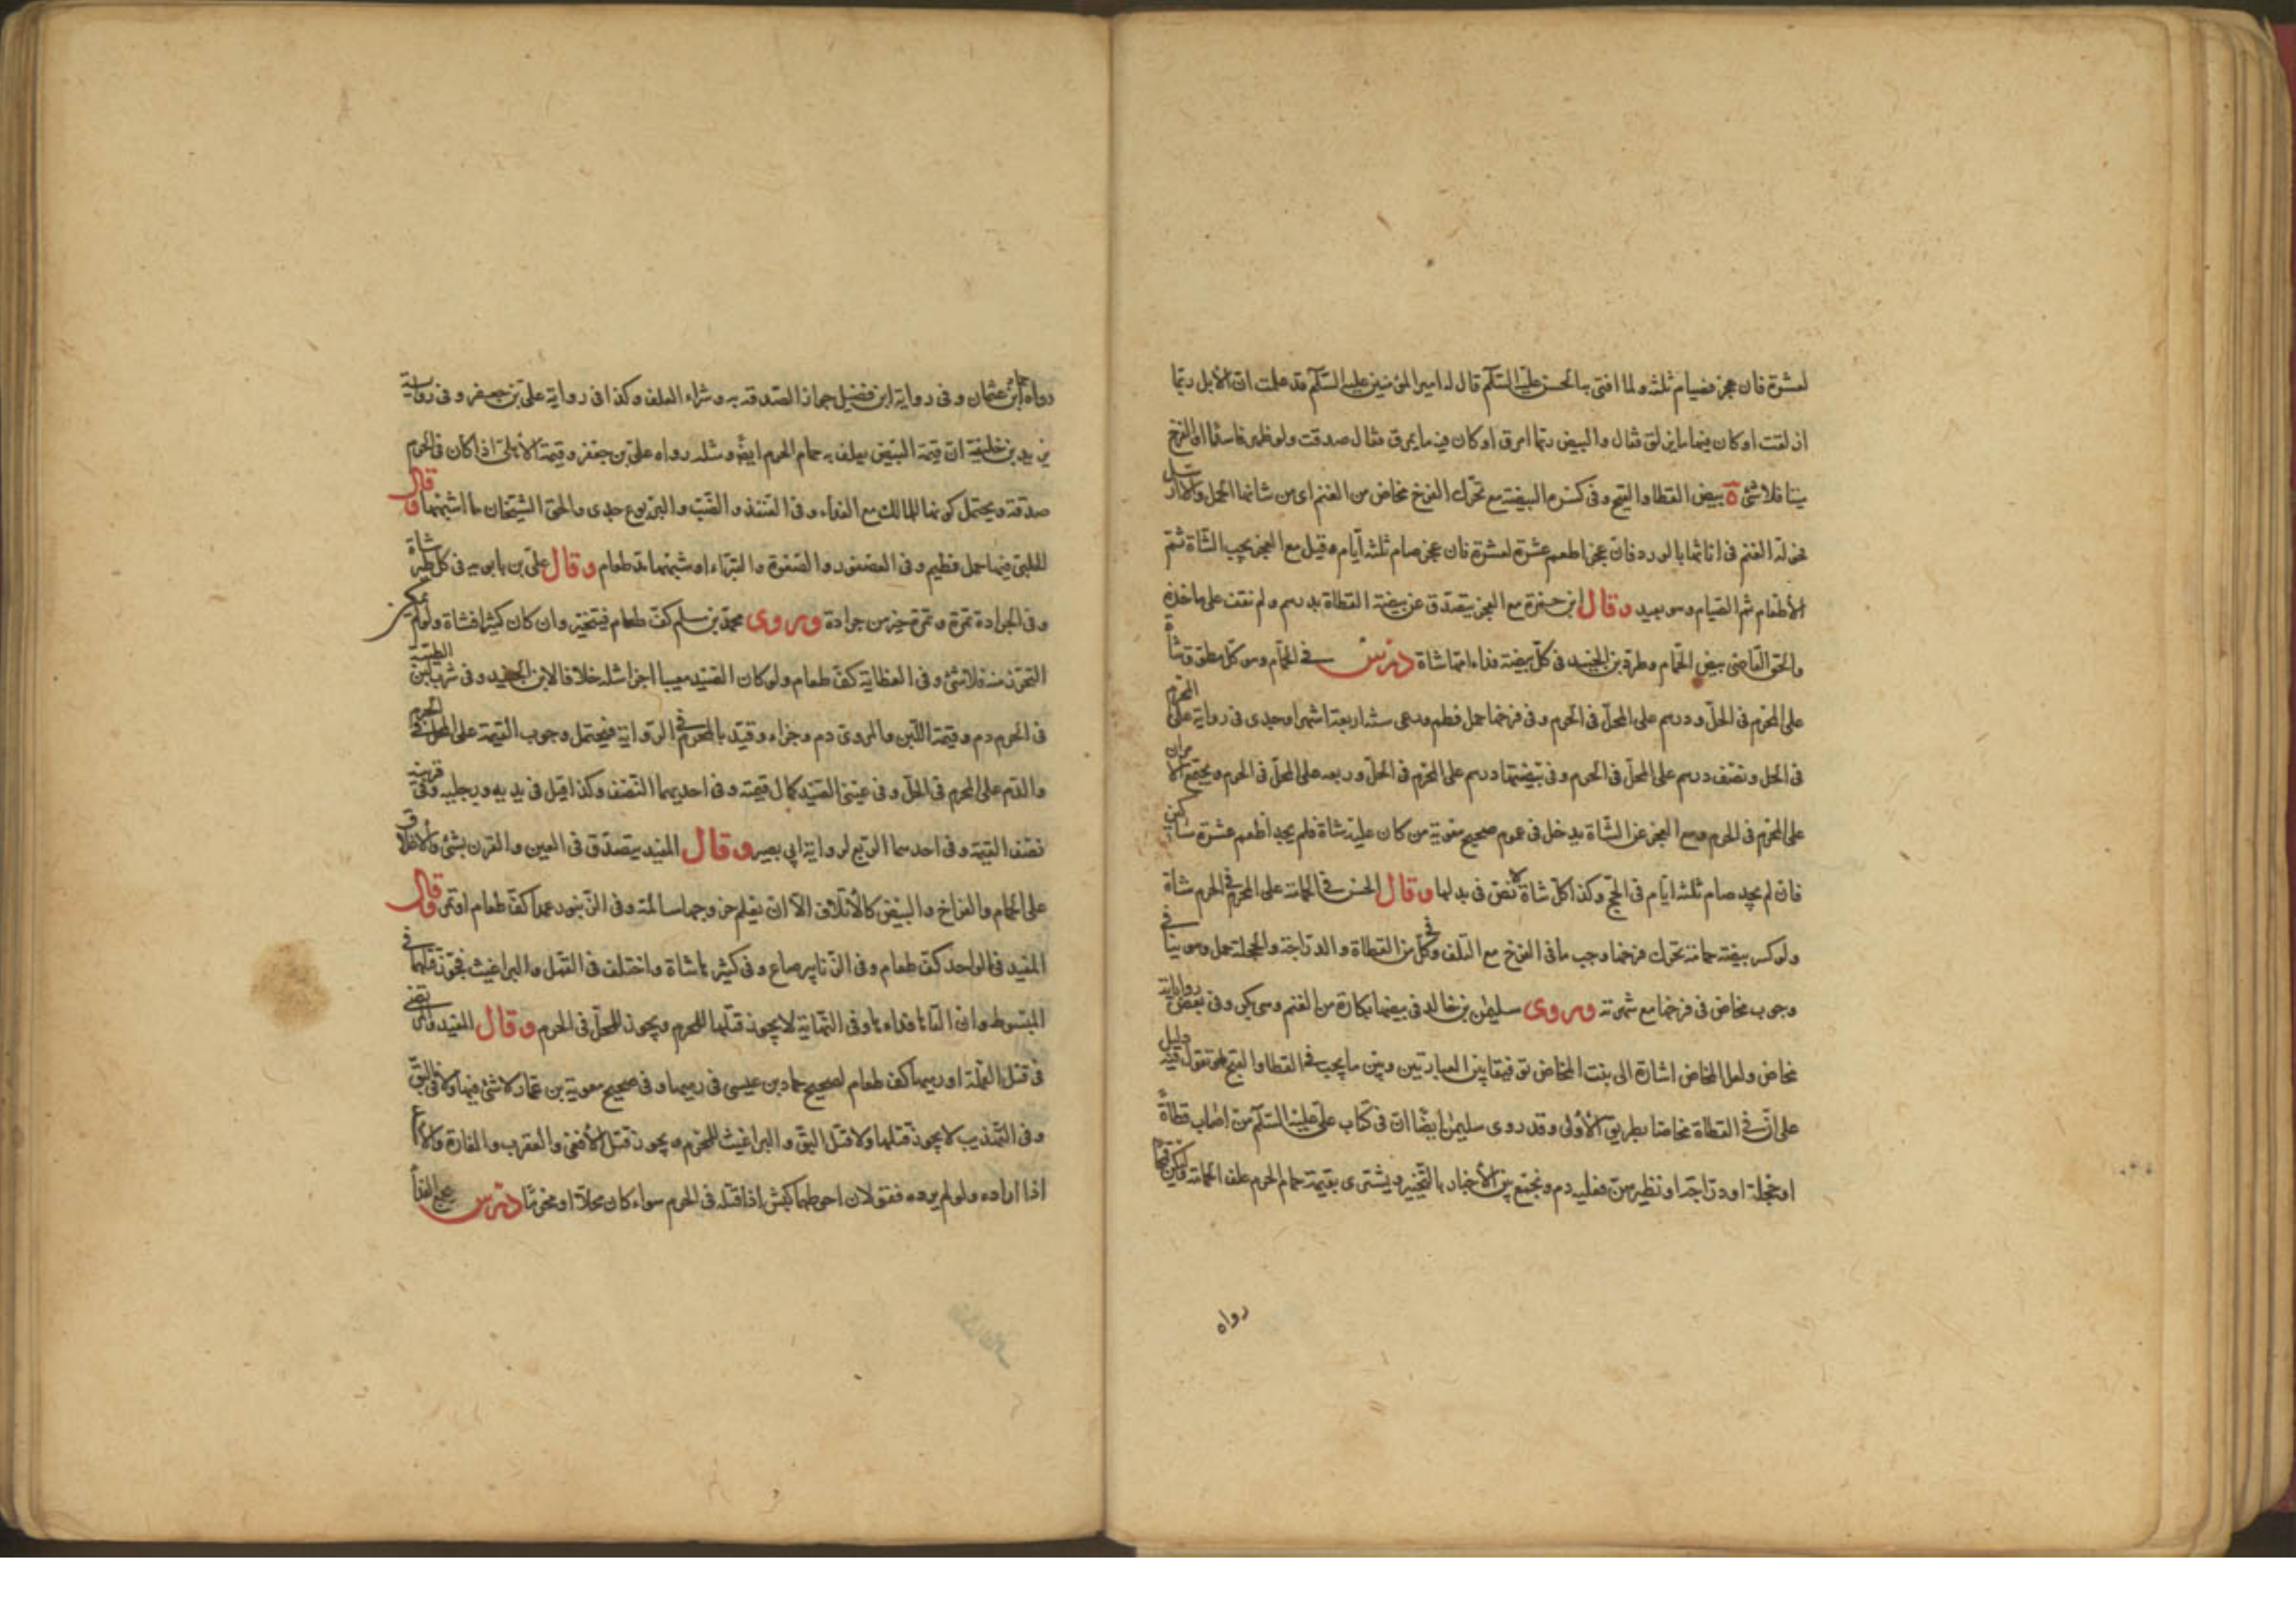 لعشرة فان عجز فصيام ثلثه ولما افتى به الحسن عليه السّلام قال له امير المؤمنين عليه السّلام قد علمت انّ الأبل ربّما
ازلقت او كان فيها ما يزلق فقال والبيض ربّما امرق او كان فيه ما يمرق فقال صدقت ولو ظهر فاسدًا او الفرخ
ميتا فلا شئ ة بيض القطا والقبج وفى كسره البيضة مع تحرّك الفرخ مخاض من الغنم اى من شانها الحمل والّا ارسل
فحولة الغنم فى اناثها بالورد فان عجز اطعم عشرة لعشرة فان عجز صام ثلثة ايّام وقيل مع العجز يجب الشّاة ثمّ
الأطعام ثم الصّيام وهو بعيد وقال ابن حمزة مع العجز يتصدّق عن بيضة القطاة بدرهم ولم نقف على ماخذه
والحق القاضى بيض الحمام وطرد بن الجنيد فى كلّ بيضة فداء امّها شاة درس فى الحمام وهو كلّ مطوّق شاة
على المحرم فى الحلّ ودرهم على المحلّ فى الحرم وفى فرخها حمل فطم ورعى سنّه اربعة اشهر او جدى فى رواية على المحرم
فى الحل ونصف درهم على المحلّ فى الحرم وفى بيضتها درهم على المحرم فى الحلّ وربعه على المحلّ فى الحرم ويجتمع الأمران
على المحرم فى الحرم ومع العجز عن الشّاة يدخل فى عموم صحيح معوية من كان عليه شاة فلم يجد اطعم عشرة مساكين
فان لم يجد صام ثلثه ايّام فى الحجّ وكذا كلّ شاة لا نصّ فى بدلها وقال الحسن فى الحمامة على المحرم فى الحرم شاة
ولو كسر بيضة حمامة تحرك فرخها وجب ما فى الفرخ مع التّلف وفى كلّ من القطاة والدّراجة والحجلة حمل وهو ينافى
وجوب مخاض فى فرخها مع شهرته وروى سليمن بن خالد فى بيضها بكارة من الغنم وهى بكر وفى بعض رواياته
مخاض ولعل المخاض اشارة الى بنت المخاض توفيقا بين العبارتين وبين ما يجب فى القطا والقبج فهو نقول فيه دليل
على انّ فى القطاة مخاضا بطريق الأولى وقد روى سليمن ايضًا انّ فى كتاب على عليه السّلام من اصاب قطاةً
او حجلة او درّاجة او نظيرهنّ فعليه دم ونجمع بين الأخبار بالتّخيير ويشترى بقيمة حمام الحرم علف الحمامة وليكن قمحًا
رواه
رواه حمّاد بن عثمان وفى رواية ابن فضيل جواز الصّدقة به وشراء العلف وكذا فى رواية على بن جعفر وفى رواية
يزيد بن خليفة انّ قيمة البيض يعلف به حمام الحرم ايضًا ومثله رواه علىّ بن جعفر وقيمة الأهلىّ اذا كان فى الحرم
صدقة ويحتمل كونها للمالك مع الفداء وفى القنفذ والضّبّ واليربوع جدى والحق الشّيخان ما اشبهها وقال
الحلبىّ فيها حمل فطيم وفى العصفور والصّعوة والقبّراء او شبهها مدّ طعام وقال علىّ بن بابويه فى كل طير شاة
وفى الجرادة تمرة وتمرة خير من جرادة وروى محمّد بن مسلم كفّ طعام فيتخيّر وان كان كثيرا فشاة ولو لم يمكن
التّحرّز منه فلا شئ وفى العظاية كفّ طعام ولو كان الصّيد معيبا اجزا مثله خلافا لابن الجنيد وفى شرب لبن الظّبية
فى الحرم دم وقيمة اللّبن والمروىّ دم وجزاء وقيّد بالمحرم فى الرّواية فيحتمل وجوب القيمة على المحلّ فى الحرم
والدّم على المحرم فى الحلّ وفى عينى الصّيد كمال قيمته وفى احديهما النّصف وكذا قيل فى يديه ورجليه وفى قرنيه
نصف القيمة وفى احدهما الرّبع لرواية ابى بصير وقال المفيد يتصدّق فى العين والقرن بشئ والأغلاق
على الحمام والفراخ والبيض كالأتلاف الّا ان يعلم خروجها سالمة وفى الزّنبور عمدا كفّ طعام او تمر وقال
المفيد فى الواحد كفّ طعام وفى الزّنابير صاع وفى كثيرها شاة واختلف فى القمّل والبراغيث فجوّز قتلها فى
المبسوط وان القاها فداها وفى النّهاية لا يجوز قتلها للمحرم ويجوز للمحلّ فى الحرم وقال المفيد والمرتضى
فى قتل القملة او رميها كف طعام لصحيح حماد بن عيسى فى رميها وفى صحيح معوية بن عمّار لا شئ فيها ولا فى البقّ
وفى التّهذيب لا يجوز قتلها ولا قتل البقّ والبراغيث للمحرم ويجوز قتل الأفعى والعقرب والفارة والأسد
اذا اراده ولو لم يرده فقولان احوطهما كبش اذا قتله فى الحرم سواء كان محلّا او محرمًا درس يجتمع الفداء